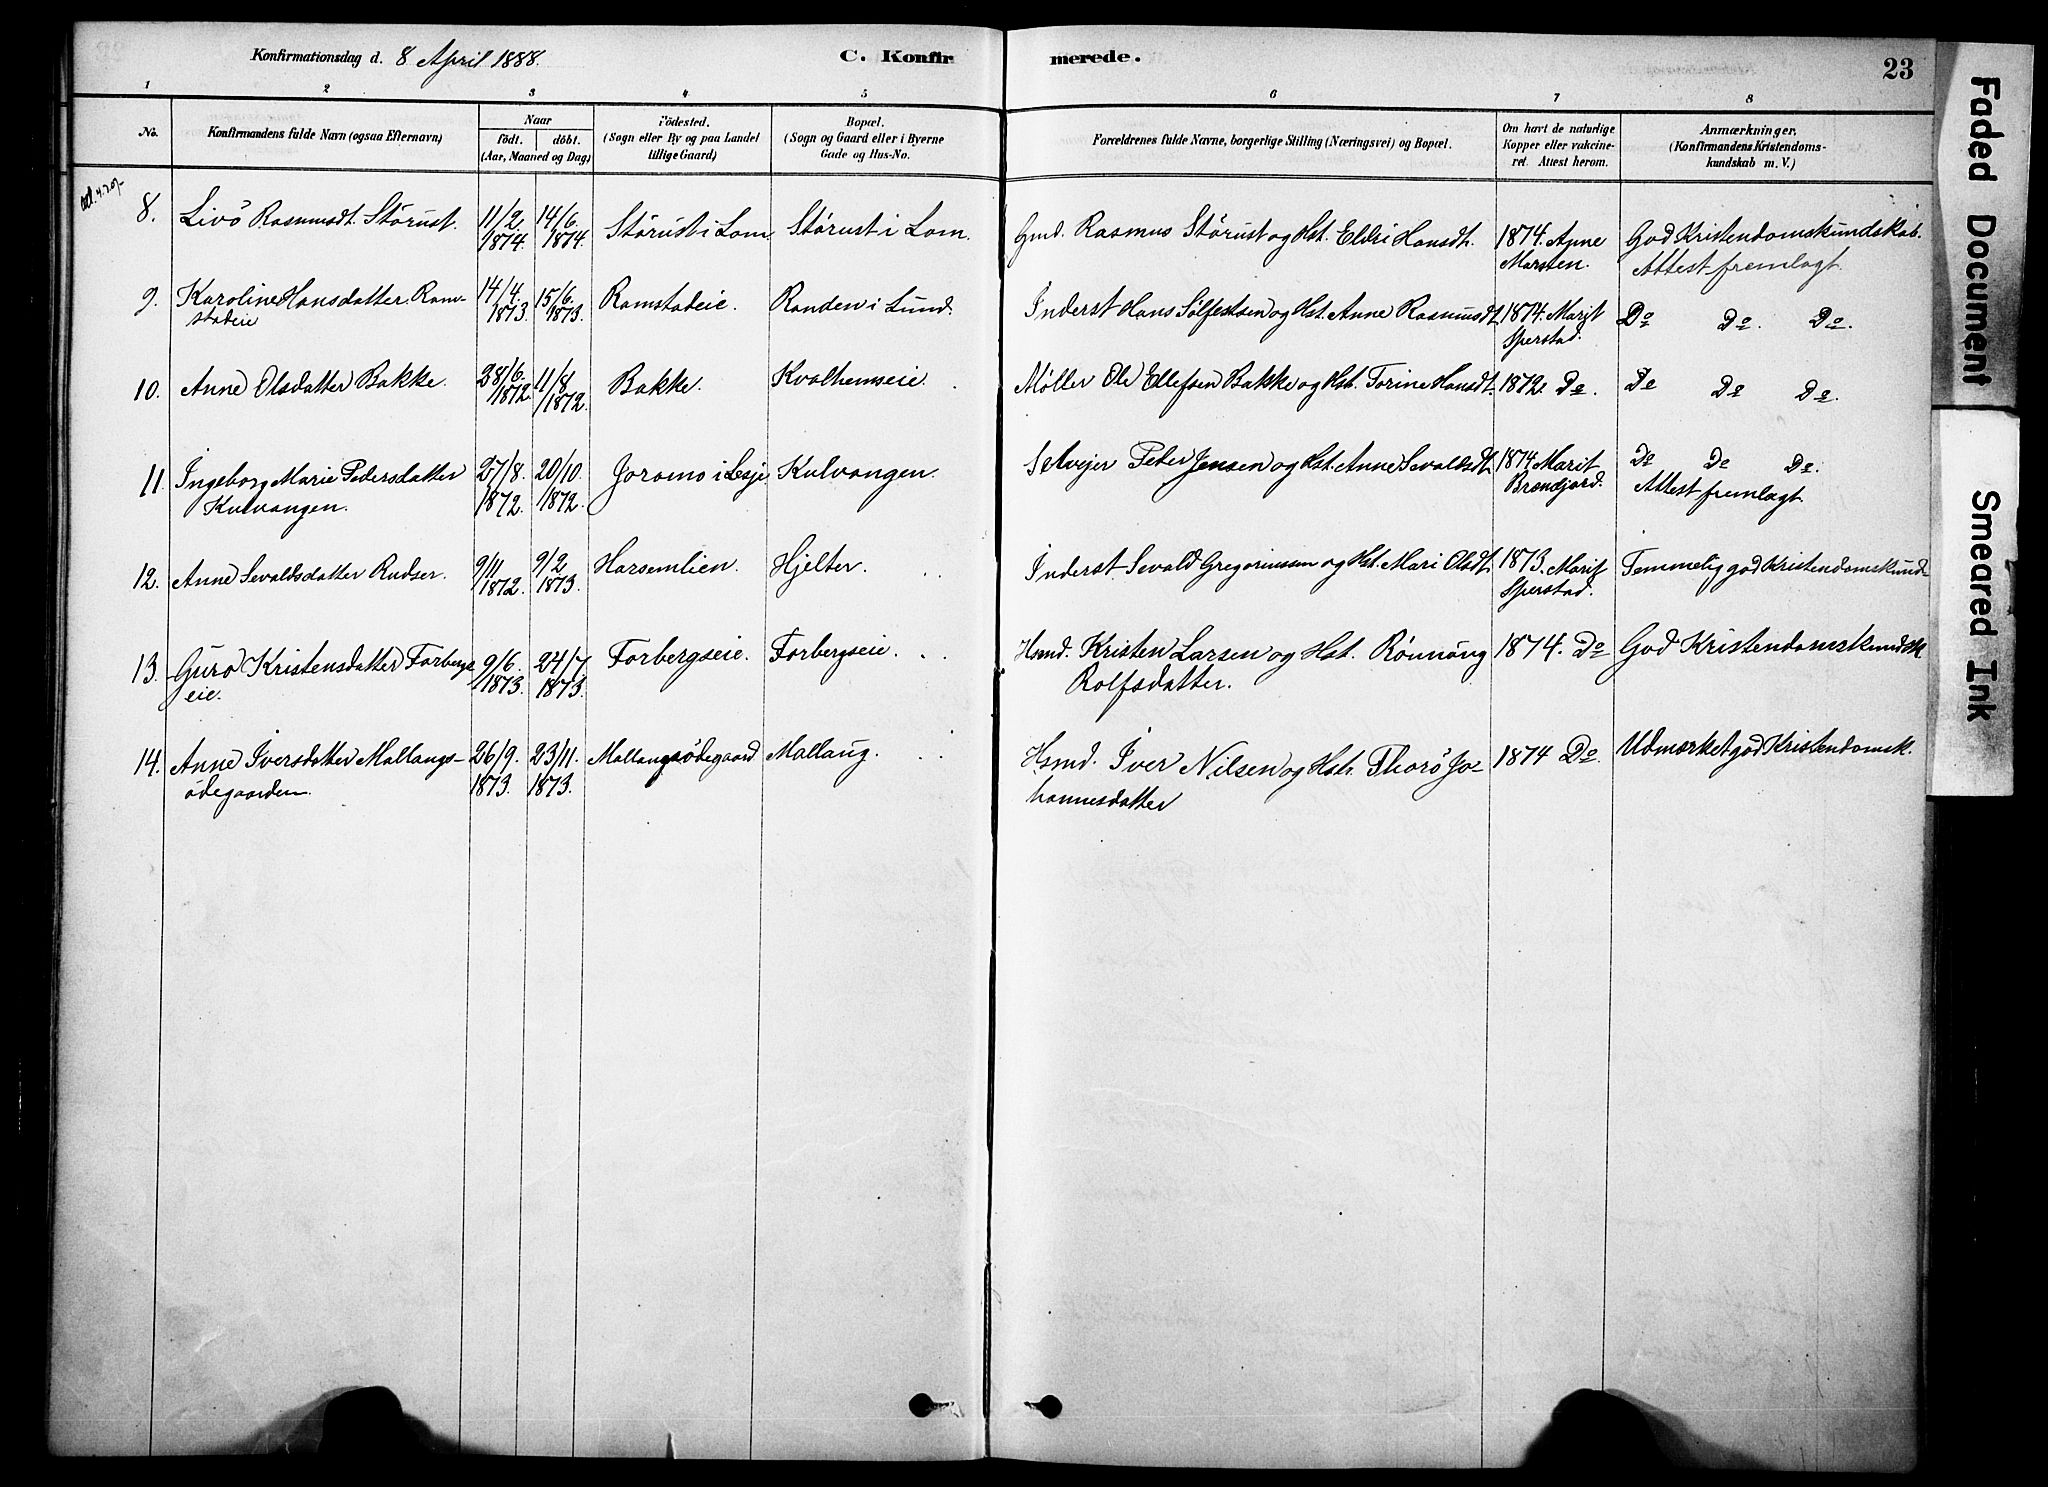 Konfirmationsdag d. 8 April 1888.
C. Konfir
merede.
23
1 2 3 4 5 6 7 8
No.
Konfirmandens fulde Navn (ogsaa Efternavn)
Naar
födt. döbt.
(Aar, Maaned og Dag)
Födested.
(Sogn eller By og paa Landet
tillige Gaard)
Bopæl.
(Sogn og Gaard eller i Byerne
Gade og Hus-No.
Forældrenes fulde Navne, borgerlige Stilling (Næringsvei) og Bopæl.
Om havt de naturlige
Kopper eller vakcine-
ret. Attest herom.
Anmærkninger.
(Konfirmandens Kristendoms-
kundskab m. V.)
8. Livö Rasmusdt. Störust. 11/2 1874. 14/6 1874. Störust i Lom. Störust i Lom. Gmd. Rasmus Störust og Hst. Eldri Hansdt. 1874. Anne God Kristendomskundskab.
Marsten. Attest fremlagt.
9. Karoline Hansdatter Ram- 14/4 1873. 15/6 1873. Ramstadeie. Randen i Lund. Inderst Hans Sölfestsen og Hst. Anne Rasmusdt. 1874. Marit Do Do. Do.
stadeie Sperstad.
10. Anne Olsdatter Bakke. 28/6 1872. 11/8 1872. Bakke. Kvalhemseie. Möller Ole Ellefsen Bakke og Hst. Torine Hansdt. 1872. Do. Do Do Do.
11. Ingeborg Marie Pedersdatter 27/8. 1872. 20/10. 1872. Joramo i Lesje Kulvangen. Selvejer Peder Jensen og Hst. Anne Sevaldsdt. 1874 Marit Do Do Do.
Kulvangen. Brændjord. Attest fremlagt.
12. Anne Sevaldsdatter Rudser. 9/11 1872. 9/2 1873. Harsemlien. Hjelter. Inderst Sevald Gregoriussen og Hst. Mari Olsdt. 1873. Marit Temmelig god Kristendomskund-
Sperstad.
13. Guro Kristensdatter Forbergs 9/6. 1873. 24/7 1873. Forbergseie. Forbergseie. Hsmd. Kristen Larsen og Hst. Rönnöug 1874. Do God Kristendomskundsk.
eie. Rolfsdatter.
14. Anne Iversdatter Mallangs- 26/9. 1873. 23/11. 1873. Mallangsödegaard. Mallaug. Hsmd. Iver Nilsen og Hst. Thorö Jo- 1874 Do. Udmærket god Kristendomsk.
ödegaarden. hannesdatter
Faded Document
Smeared Ink